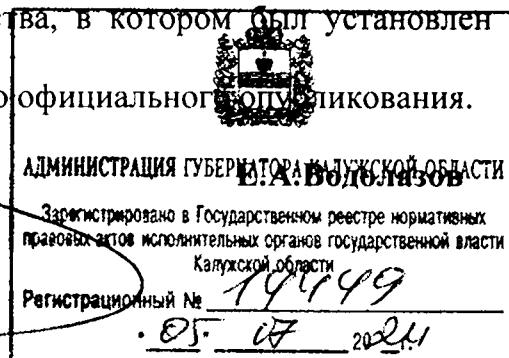 ства, в котором был установлен
официального опубликования.
АДМИНИСТРАЦИЯ ГУБЕРНАТОРА КАЛУЖСКОЙ ОБЛАСТИ
Е.А.Водолазов
Зарегистрировано в Государственном реестре нормативных
правовых актов исполнительных органов государственной власти
Калужской области
Регистрационный № 14449
05. 07 2024